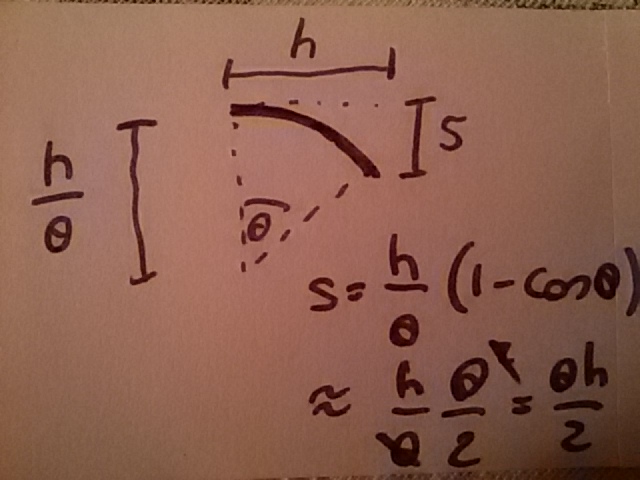 h
S
h/θ
θ
S = h/θ (1 - cosθ)
≈ h/θ θ²/2 = θh/2